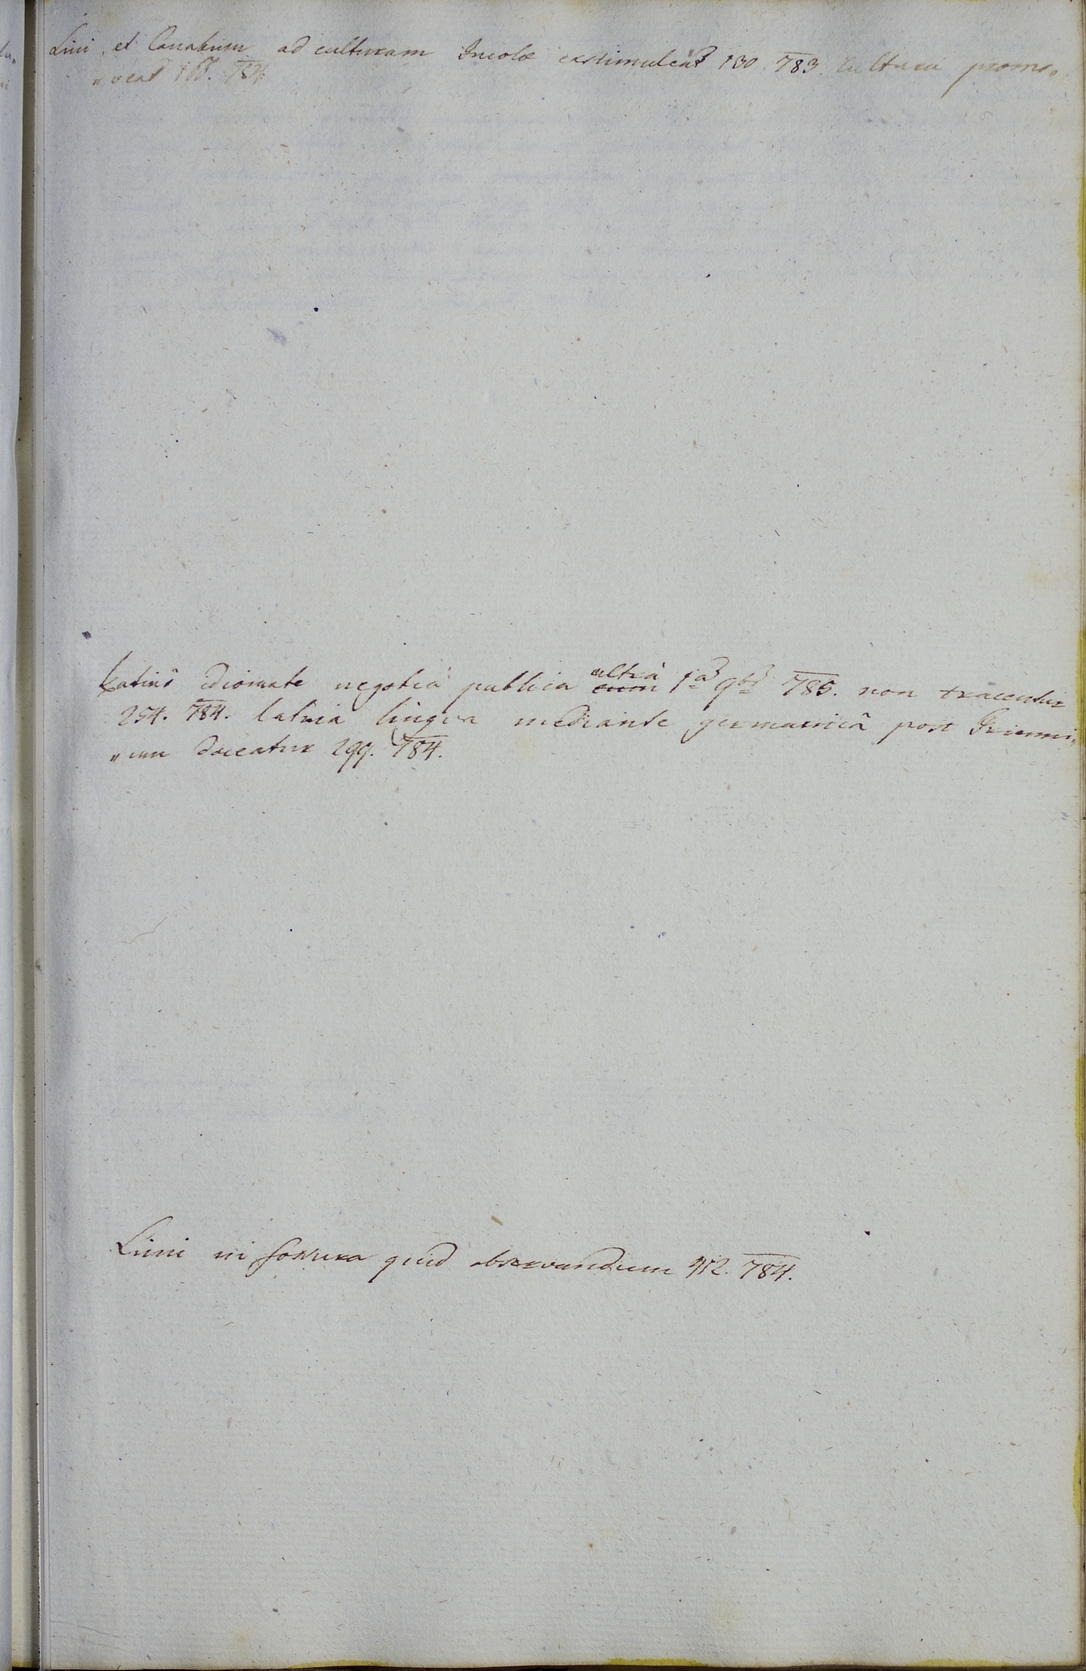 Lini et Canabum ad culturam Incolae exstimulent 130 783. Cultura promo„
„veat 168. 784
Latino idiomate negotia publica ultra 1a 9bris 785. non tracentur
254. 784. latina lingva mediante germanica post Trienni„
„um doceatur 299. 784.
Limi in quid observandum 912. 784.